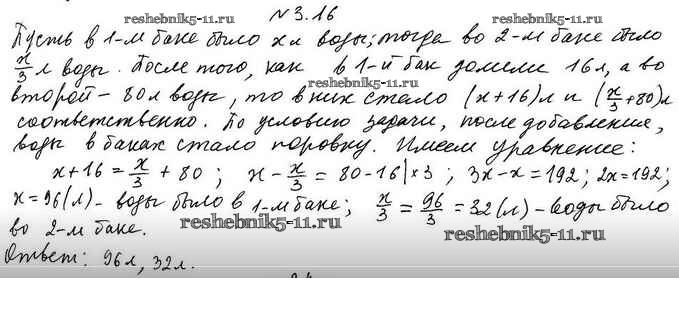 №3.16
reshebnik5-11.ru
reshebnik5-11.ru
Пусть в 1-м баке было x л воды; тогда во 2-м баке было
x/3 л воды. После того, как в 1-й бак долили 16 л, а во
reshebnik5-11.ru
второй – 80 л воды, то в них стало (x+16) л и (x/3+80) л
соответственно. По условию задачи, после добавления,
воды в баках стало поровну. Имеем уравнение:
x+16 = x/3 + 80 ; x - x/3 = 80-16 |×3 ; 3x-x=192; 2x=192;
x=96(л) – воды было в 1-м баке; x/3 = 96/3 = 32(л) – воды было
reshebnik5-11.ru
reshebnik5-11.ru
во 2-м баке.
Ответ: 96 л, 32 л.